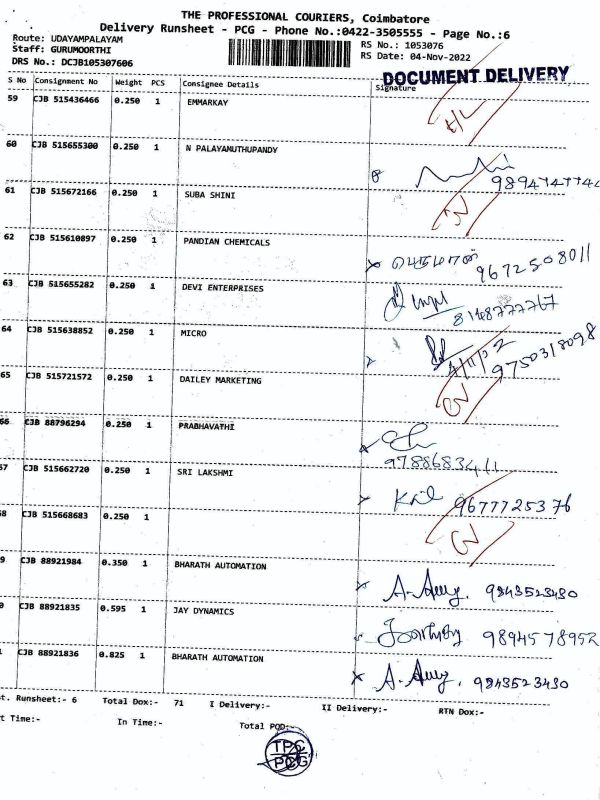 THE PROFESSIONAL COURIERS, Coimbatore
Delivery Runsheet - PCG - Phone No.:0422-3505555 - Page No.:6
Route: UDAYAMPALAYAM RS No.: 1053076
Staff: GURUMOORTHI RS Date: 04-Nov-2022
DRS No.: DCJB105307606
DOCUMENT DELIVERY
S No Consignment No Weight PCS Consignee Details Signature
59 CJB 515436466 0.250 1 EMMARKAY
60 CJB 515655300 0.250 1 N PALAYAMUTHUPANDY
61 CJB 515672166 0.250 1 SUBA SHINI
62 CJB 515610897 0.250 1 PANDIAN CHEMICALS
பெருமாள் 9672508011
63 CJB 515655282 0.250 1 DEVI ENTERPRISES
8148777767
64 CJB 515638852 0.250 1 MICRO
4/11/22 9750318098
65 CJB 515721572 0.250 1 DAILEY MARKETING
66 CJB 88796294 0.250 1 PRABHAVATHI
67 CJB 515662720 0.250 1 SRI LAKSHMI
9677725376
68 CJB 515668683 0.250 1
9 CJB 88921984 0.350 1 BHARATH AUTOMATION
9843523430
0 CJB 88921835 0.595 1 JAY DYNAMICS
9894578952
1 CJB 88921836 0.825 1 BHARATH AUTOMATION
9843523430
t. Runsheet:- 6 Total Dox:- 71 I Delivery:- II Delivery:- RTN Dox:-
t Time:- In Time:- Total POD:-
TPC
PCG